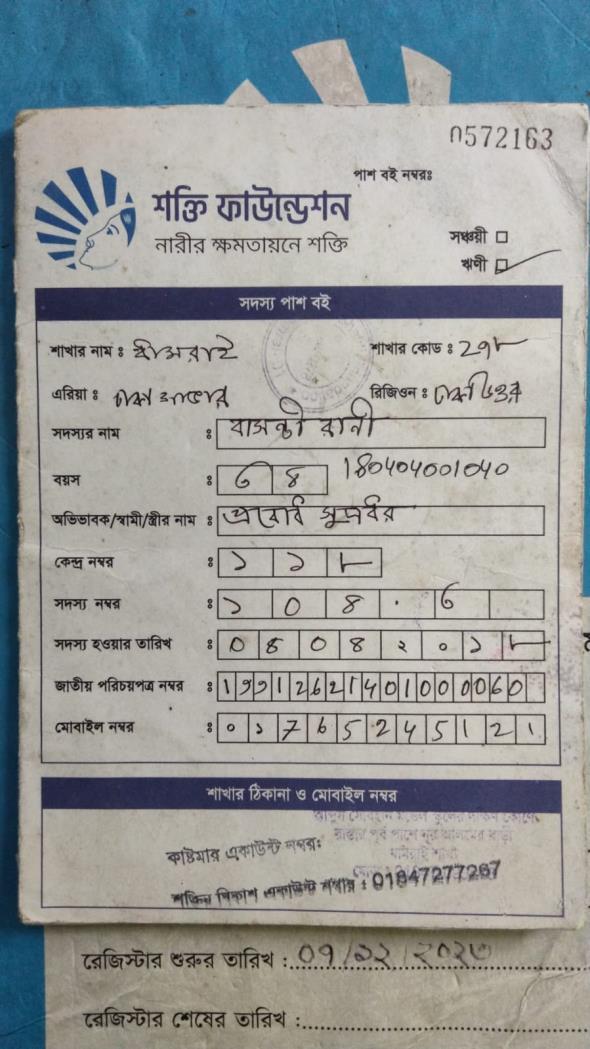 0572163
পাশ বই নম্বরঃ
শক্তি ফাউন্ডেশন
নারীর ক্ষমতায়নে শক্তি
সঞ্চয়ী
ঋণী
সদস্য পাশ বই
শাখার নাম ঃ ধামরাই শাখার কোড ঃ 29৮
এরিয়া ঃ ঢাকা রিজিওন ঃ ঢাকা উত্তর
সদস্যর নাম ঃ বাসন্তী রানী
বয়স ঃ ৩৪ 180404001040
অভিভাবক/স্বামী/স্ত্রীর নাম ঃ সূত্রধর
কেন্দ্র নম্বর ঃ ১১৮
সদস্য নম্বর ঃ ১০৪.৩
সদস্য হওয়ার তারিখ ঃ ০৪০৪২০১৮
জাতীয় পরিচয়পত্র নম্বর ঃ 19912621401000060
মোবাইল নম্বর ঃ ০১765245121
শাখার ঠিকানা ও মোবাইল নম্বর
রাস্তার পূর্ব পাশে নূর আলমের বাড়ী
ধামরাই শাখা
কাষ্টমার একাউন্ট নম্বরঃ
শক্তির বিকাশ একাউন্ট নম্বার : 01847277267
রেজিস্টার শুরুর তারিখ : ০9/১২/২০২৩
রেজিস্টার শেষের তারিখ :